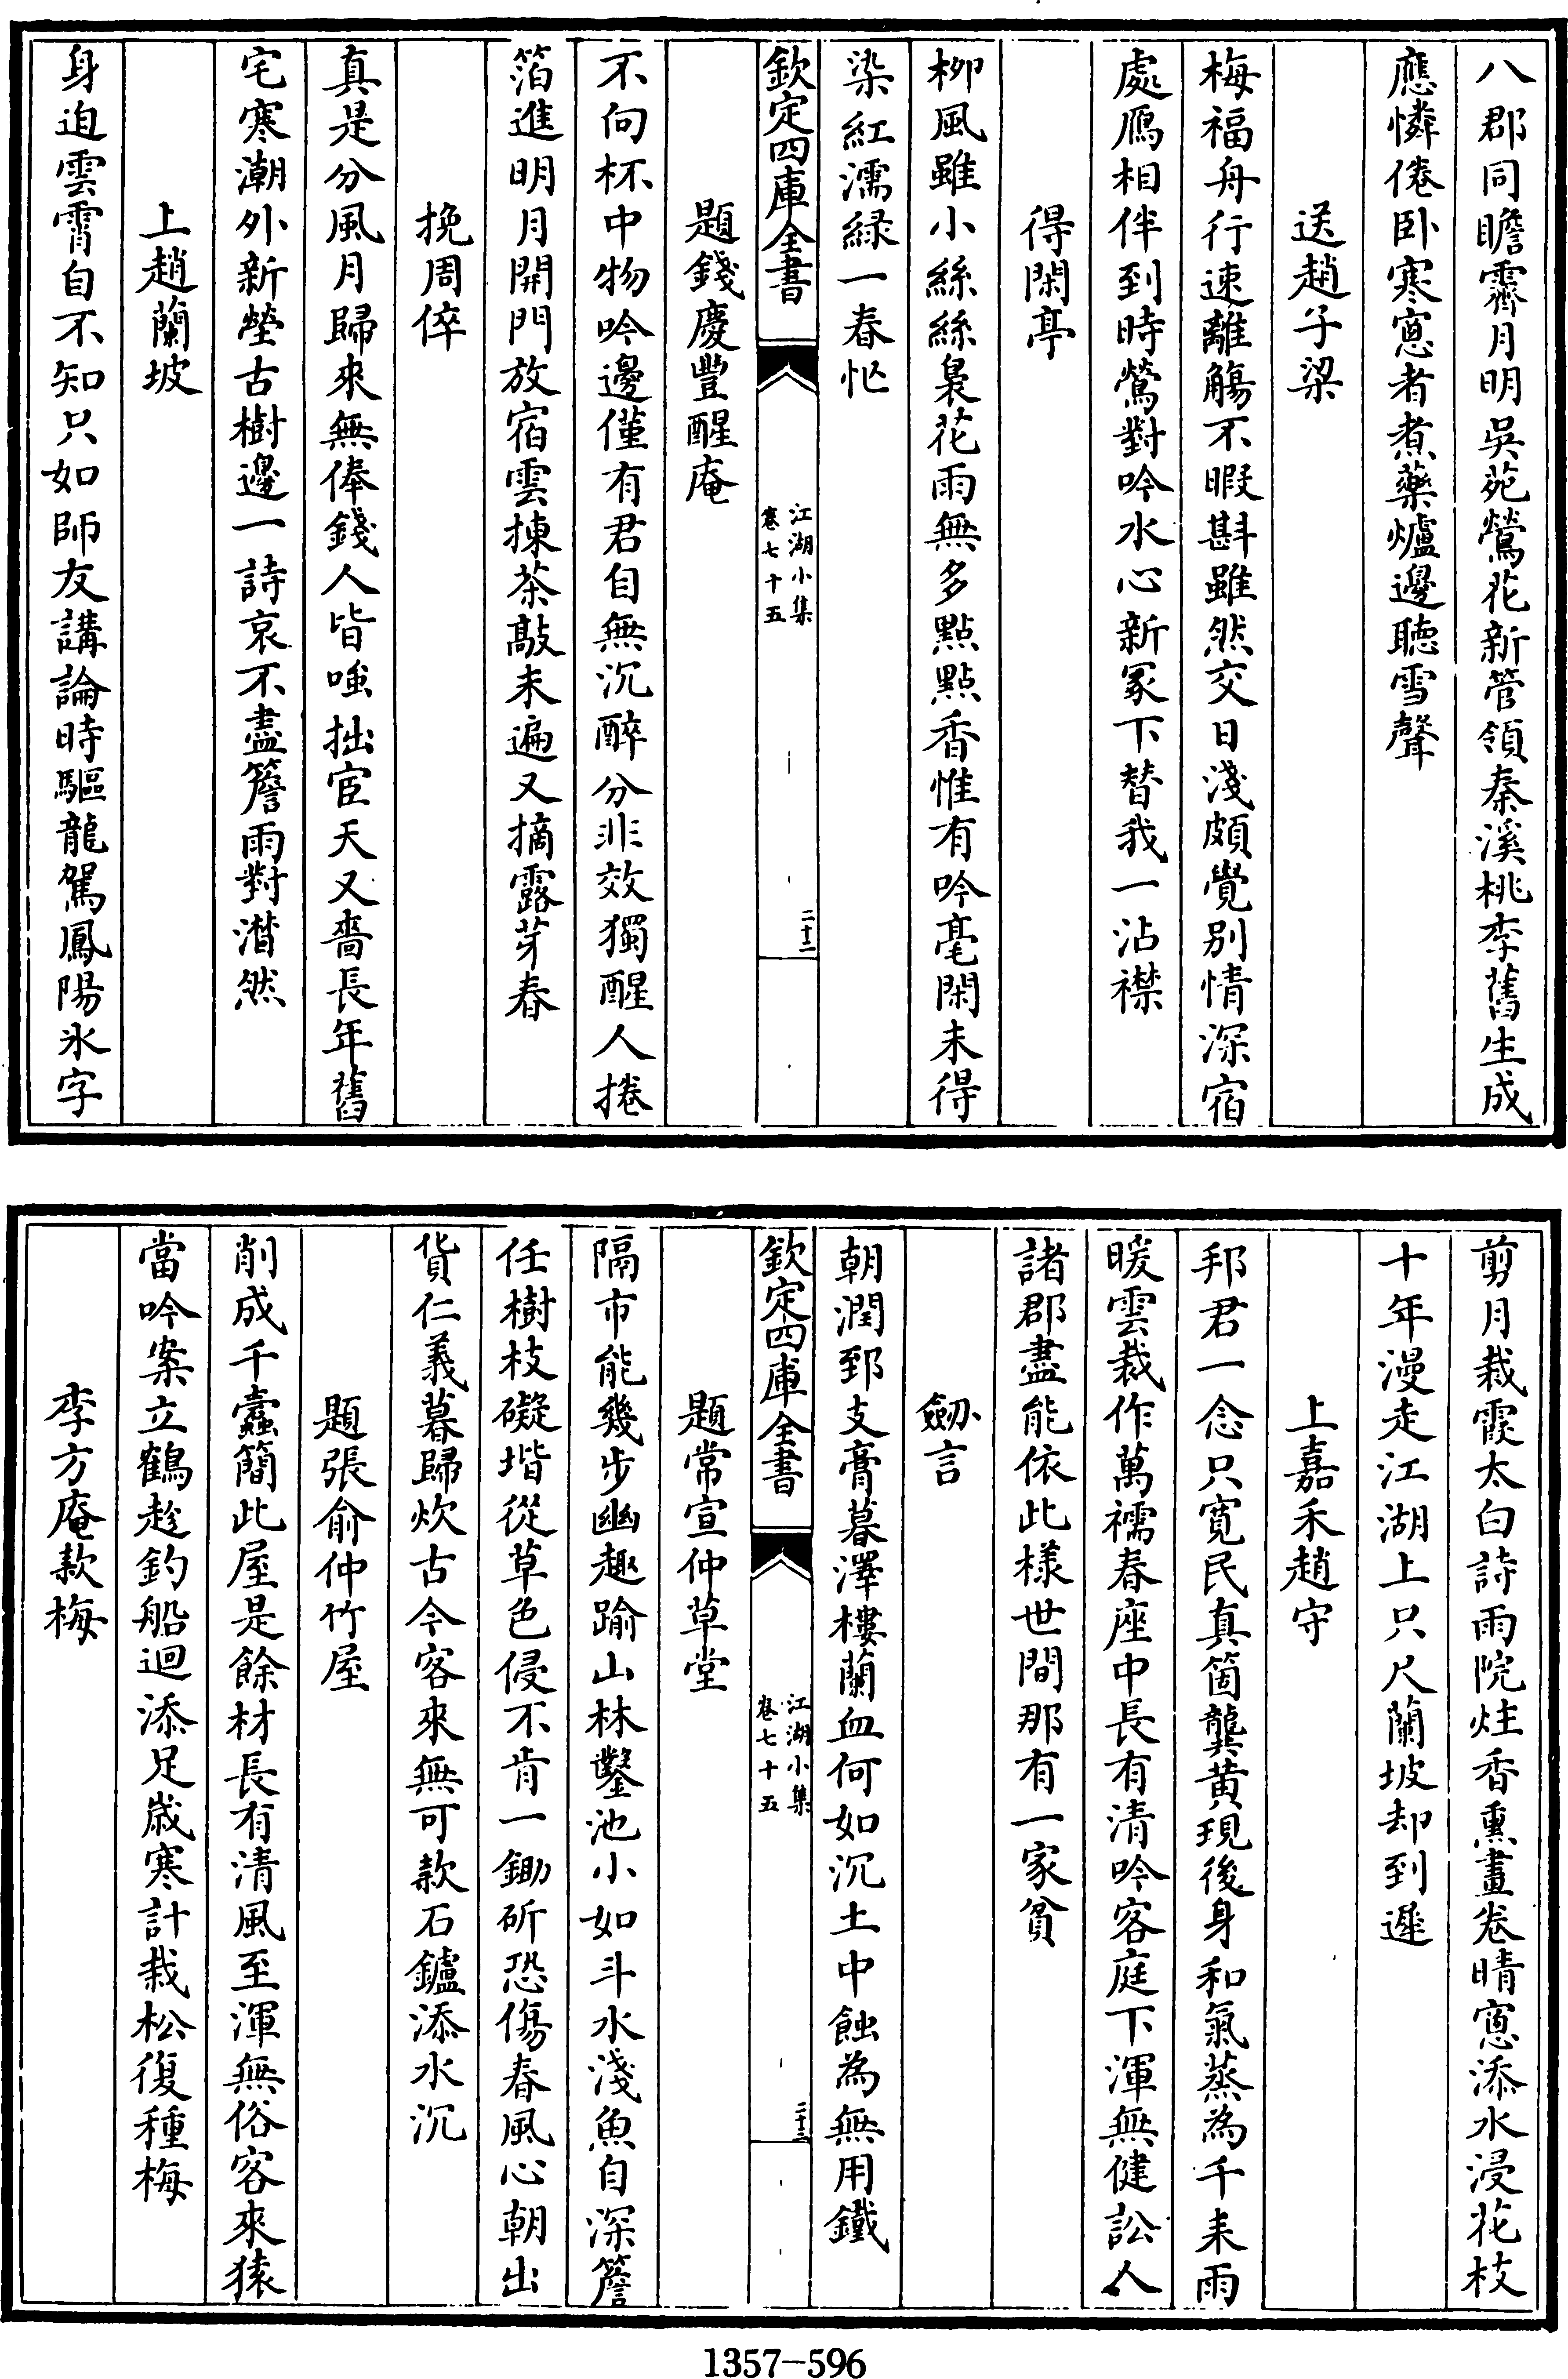 八郡同瞻霽月明吳苑鶯花新管領秦溪桃李舊生成
應憐倦卧寒窻者煮藥爐邊聽雪聲
送趙子梁
梅福舟行速離觴不暇斟雖然交日淺頗覺别情深宿
處鴈相伴到時鶯對吟水心新冢下替我一沾襟
得閑亭
栁風雖小絲絲裊花雨無多點點香惟有吟毫閑未得
染紅濡緑一春忙
欽定四庫全書
江湖小集
卷七十五
二十二
題錢慶豐醒庵
不向杯中物吟邊僅有君自無沉醉分非效獨醒人捲
箔進明月開門放宿雲揀茶敲未遍又摘露芽春
挽周倅
真是分風月歸來無俸錢人皆嗤拙宦天又嗇長年舊
宅寒潮外新塋古樹邊一詩哀不盡簷雨對潸然
上趙蘭坡
身迫雲霄自不知只如師友講論時驅龍駕鳳陽氷字
剪月裁霞太白詩雨院炷香熏畫卷晴窻添水浸花枝
十年漫走江湖上只尺蘭坡却到遲
上嘉禾趙守
邦君一念只寛民真箇龔黄現後身和氣蒸為千耒雨
暖雲裁作萬襦春座中長有清吟客庭下渾無健訟人
諸郡盡能依此様世間那有一家貧
劒言
朝潤郅支膏暮澤樓蘭血何如沉土中蝕為無用鐵
欽定四庫全書
江湖小集
卷七十五
二十三
題常宣仲草堂
隔市能幾步幽趣踰山林鑿池小如斗水淺魚自深簷
任樹枝礙堦從草色侵不肯一鋤斫恐傷春風心朝出
貨仁義暮歸炊古今客來無可款石鑪添水沉
題張俞仲竹屋
削成千蠧簡此屋是餘材長有清風至渾無俗客來猿
當吟案立鶴趁釣船迴添足嵗寒計栽松復種梅
李方庵款梅
1357-596